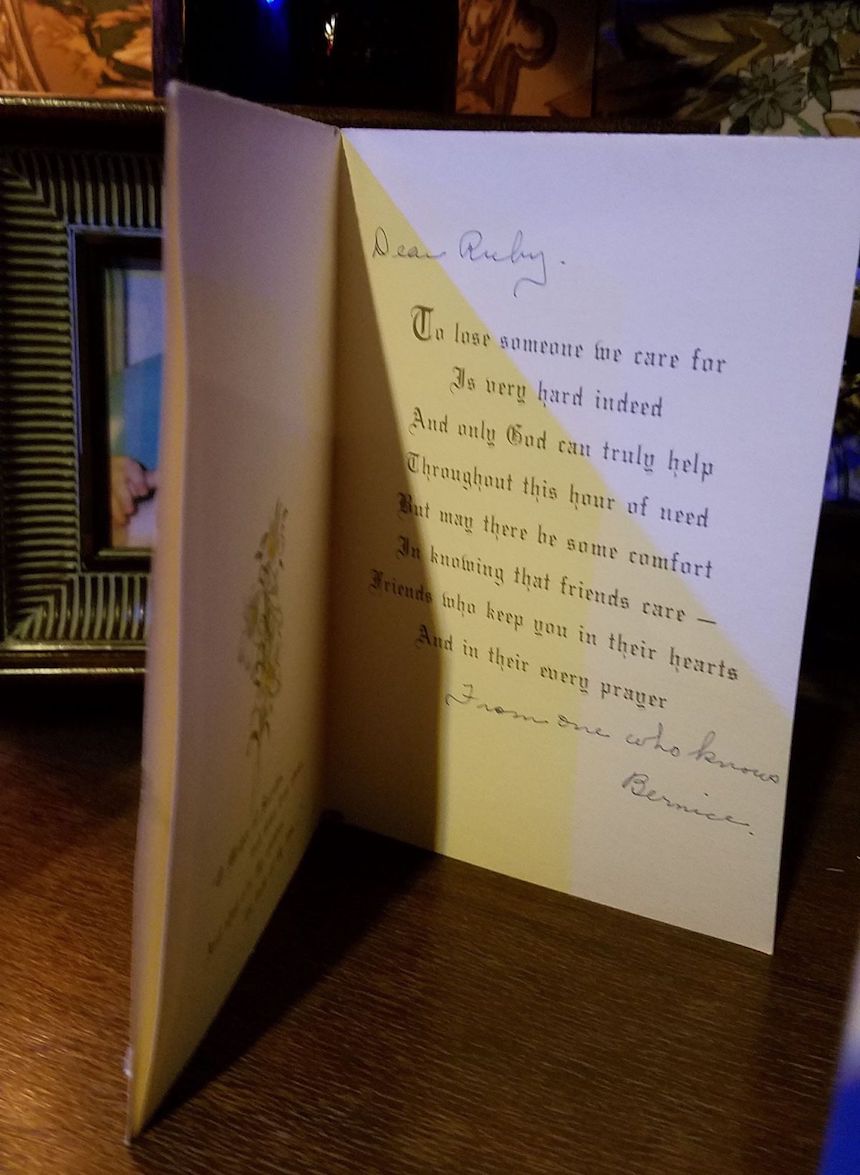 Dear Ruby.
To lose someone we care for
Is very hard indeed
And only God can truly help
Throughout this hour of need
But may there be some comfort
In knowing that friends care —
Friends who keep you in their hearts
And in their every prayer
From one who knows
Bernice.